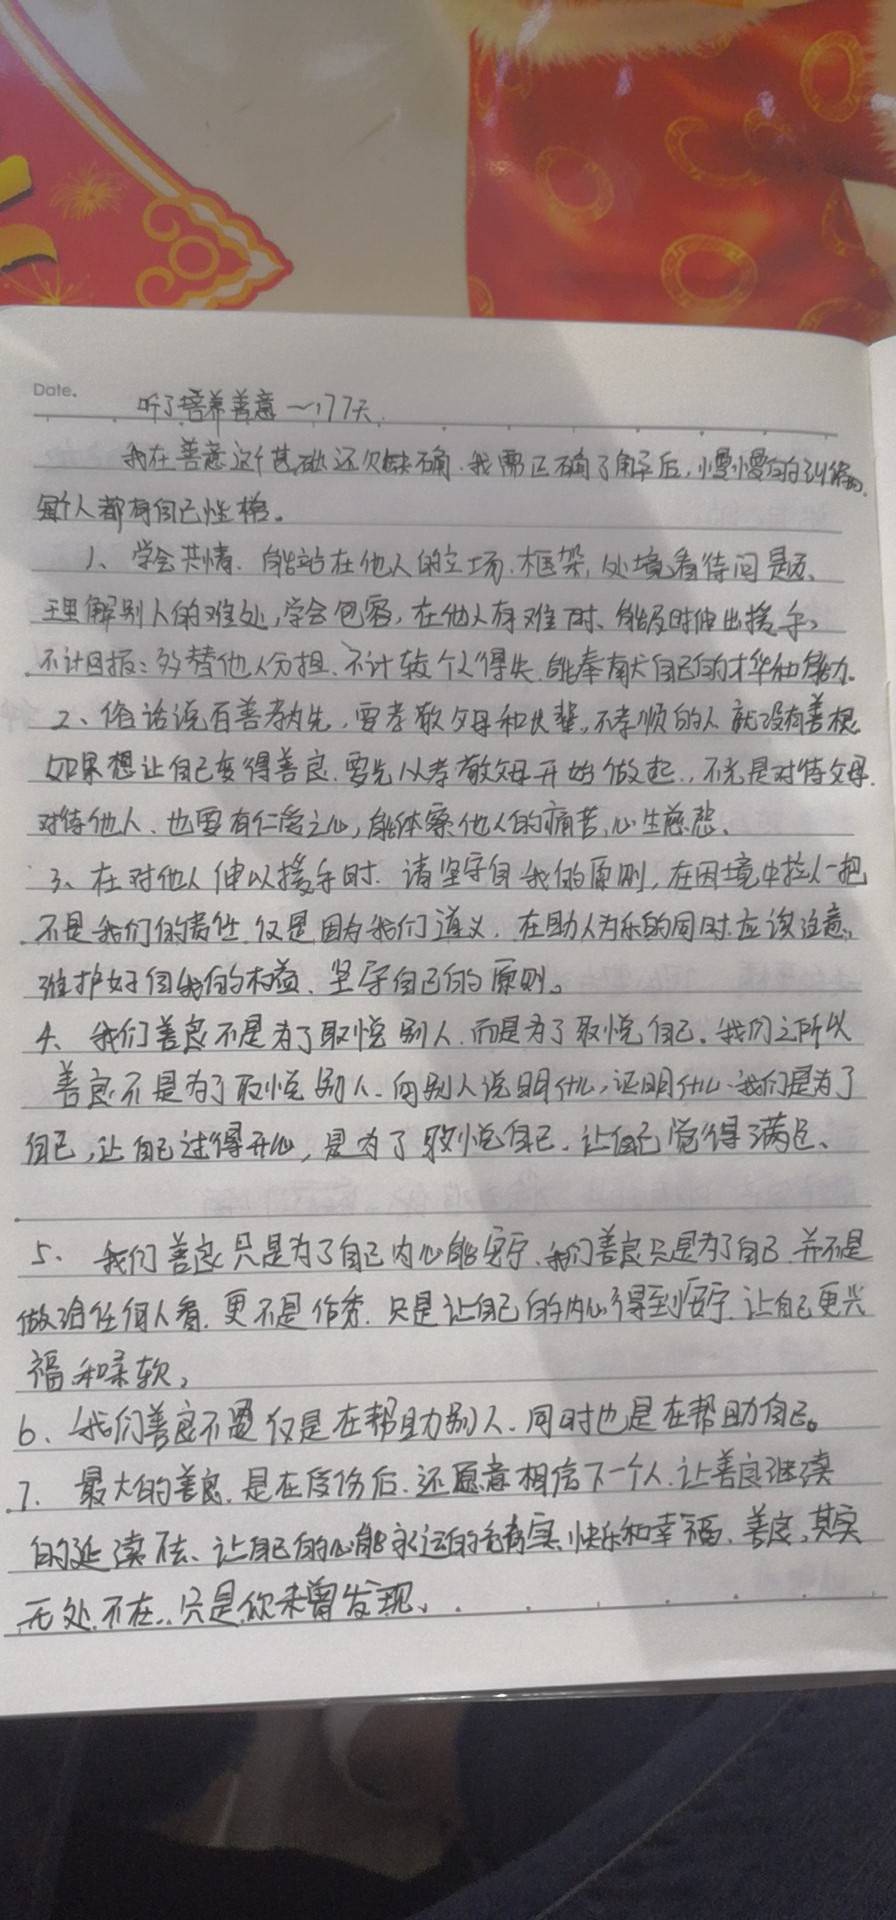 Date.
听了培养善意一177天
我在善意这个基础还欠缺不确.我需正确了解后,慢慢的训练的.
每个人都有自己性格。
1、学会共情.能站在他人的立场.框架,处境看待问题、
理解别人的难处,学会包容,在他人有难时、能及时伸出援手,
不计回报:多替他人分担.不计较个人得失.能奉献自己的才华和能力.
2、俗话说百善孝为先.要孝敬父母和长辈,不孝顺的人就没有善根
如果想让自己变得善良.要先从孝敬父母开始做起..不光是对待父母.
对待他人、也要有仁爱之心,能体察他人的痛苦,心生慈悲、
3、在对他人伸以援手时.请坚守自我的原则,在困境中拉人一把
不是我们的责任.仅是因为我们道义.在助人为乐的同时.应该注意,
维护好自我的权益、坚守自己的原则。
4、我们善良不是为了取悦别人.而是为了取悦自己。我们之所以
善良不是为了取悦别人.向别人说明什么,证明什么.我们是为了
自己,让自己过得开心,是为了取悦自己.让自己觉得满足、
5、我们善良只是为了自己内心能安宁、我们善良只是为了自己.并不是
做给任何人看.更不是作秀.只是让自己的内心得到安宁.让自己更兴
福和柔软,
6、我们善良不是仅是在帮助别人.同时也是在帮助自己。
7.最大的善良.是在受伤后.还愿意相信下一个人.让善良继续
的延续下去、让自己的心能永远的充实、快乐和幸福、善良,其实
无处不在..只是你未曾发现、